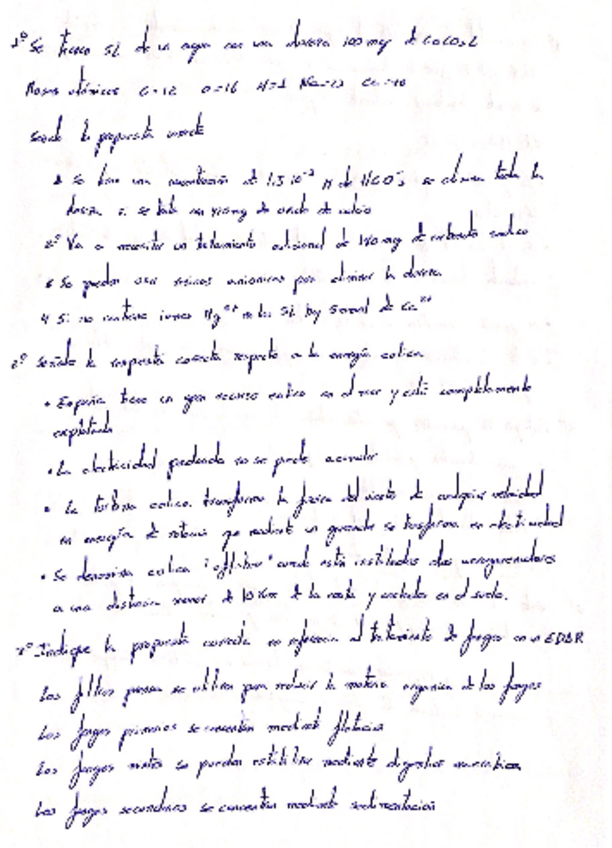 1º Se tienen 5L de un agua con una dureza 100 mg de CaCO3/L
Masas atómicas C=12 O=16 H=1 Na=23 Ca=40
Señale la propuesta correcta
1 Se tiene una concentración de 1,5 10⁻³ M de HCO⁻3 se elimina toda la
dureza si se trata con 410 mg de oxido de calcio
2º Va a necesitar un tratamiento adicional de 140 mg de carbonato sodico
3 Se pueden usar resinas anionicas para eliminar la dureza
4 Si no contiene iones Mg²⁺ en los 5L hay 5 mmol de Ca²⁺
2º Señale la respuesta correcta respecto a la energía eolica
• España tiene un gran recurso eolico en el mar y está completamente
explotado
• La electricidad producida no se puede acumular
• La turbina eolica transforma la fuerza del viento de cualquier velocidad
en energía de rotación que mediante un generador se transforma en electricidad
• Se denomina eolica "offshore" cuando está instalados dos aerogeneradores
a una distancia menor de 10 Km de la costa y anclados en el suelo.
3º Indique la propuesta correcta en referencia al tratamiento de fangos en un EDAR
Los filtros prensa se utilizan para reducir la materia organica de los fangos
Los fangos primarios se concentran mediante flotacion
Los fangos mixtos se pueden estabilizar mediante digestion anaerobica
Los fangos secundarios se concentran mediante sedimentación